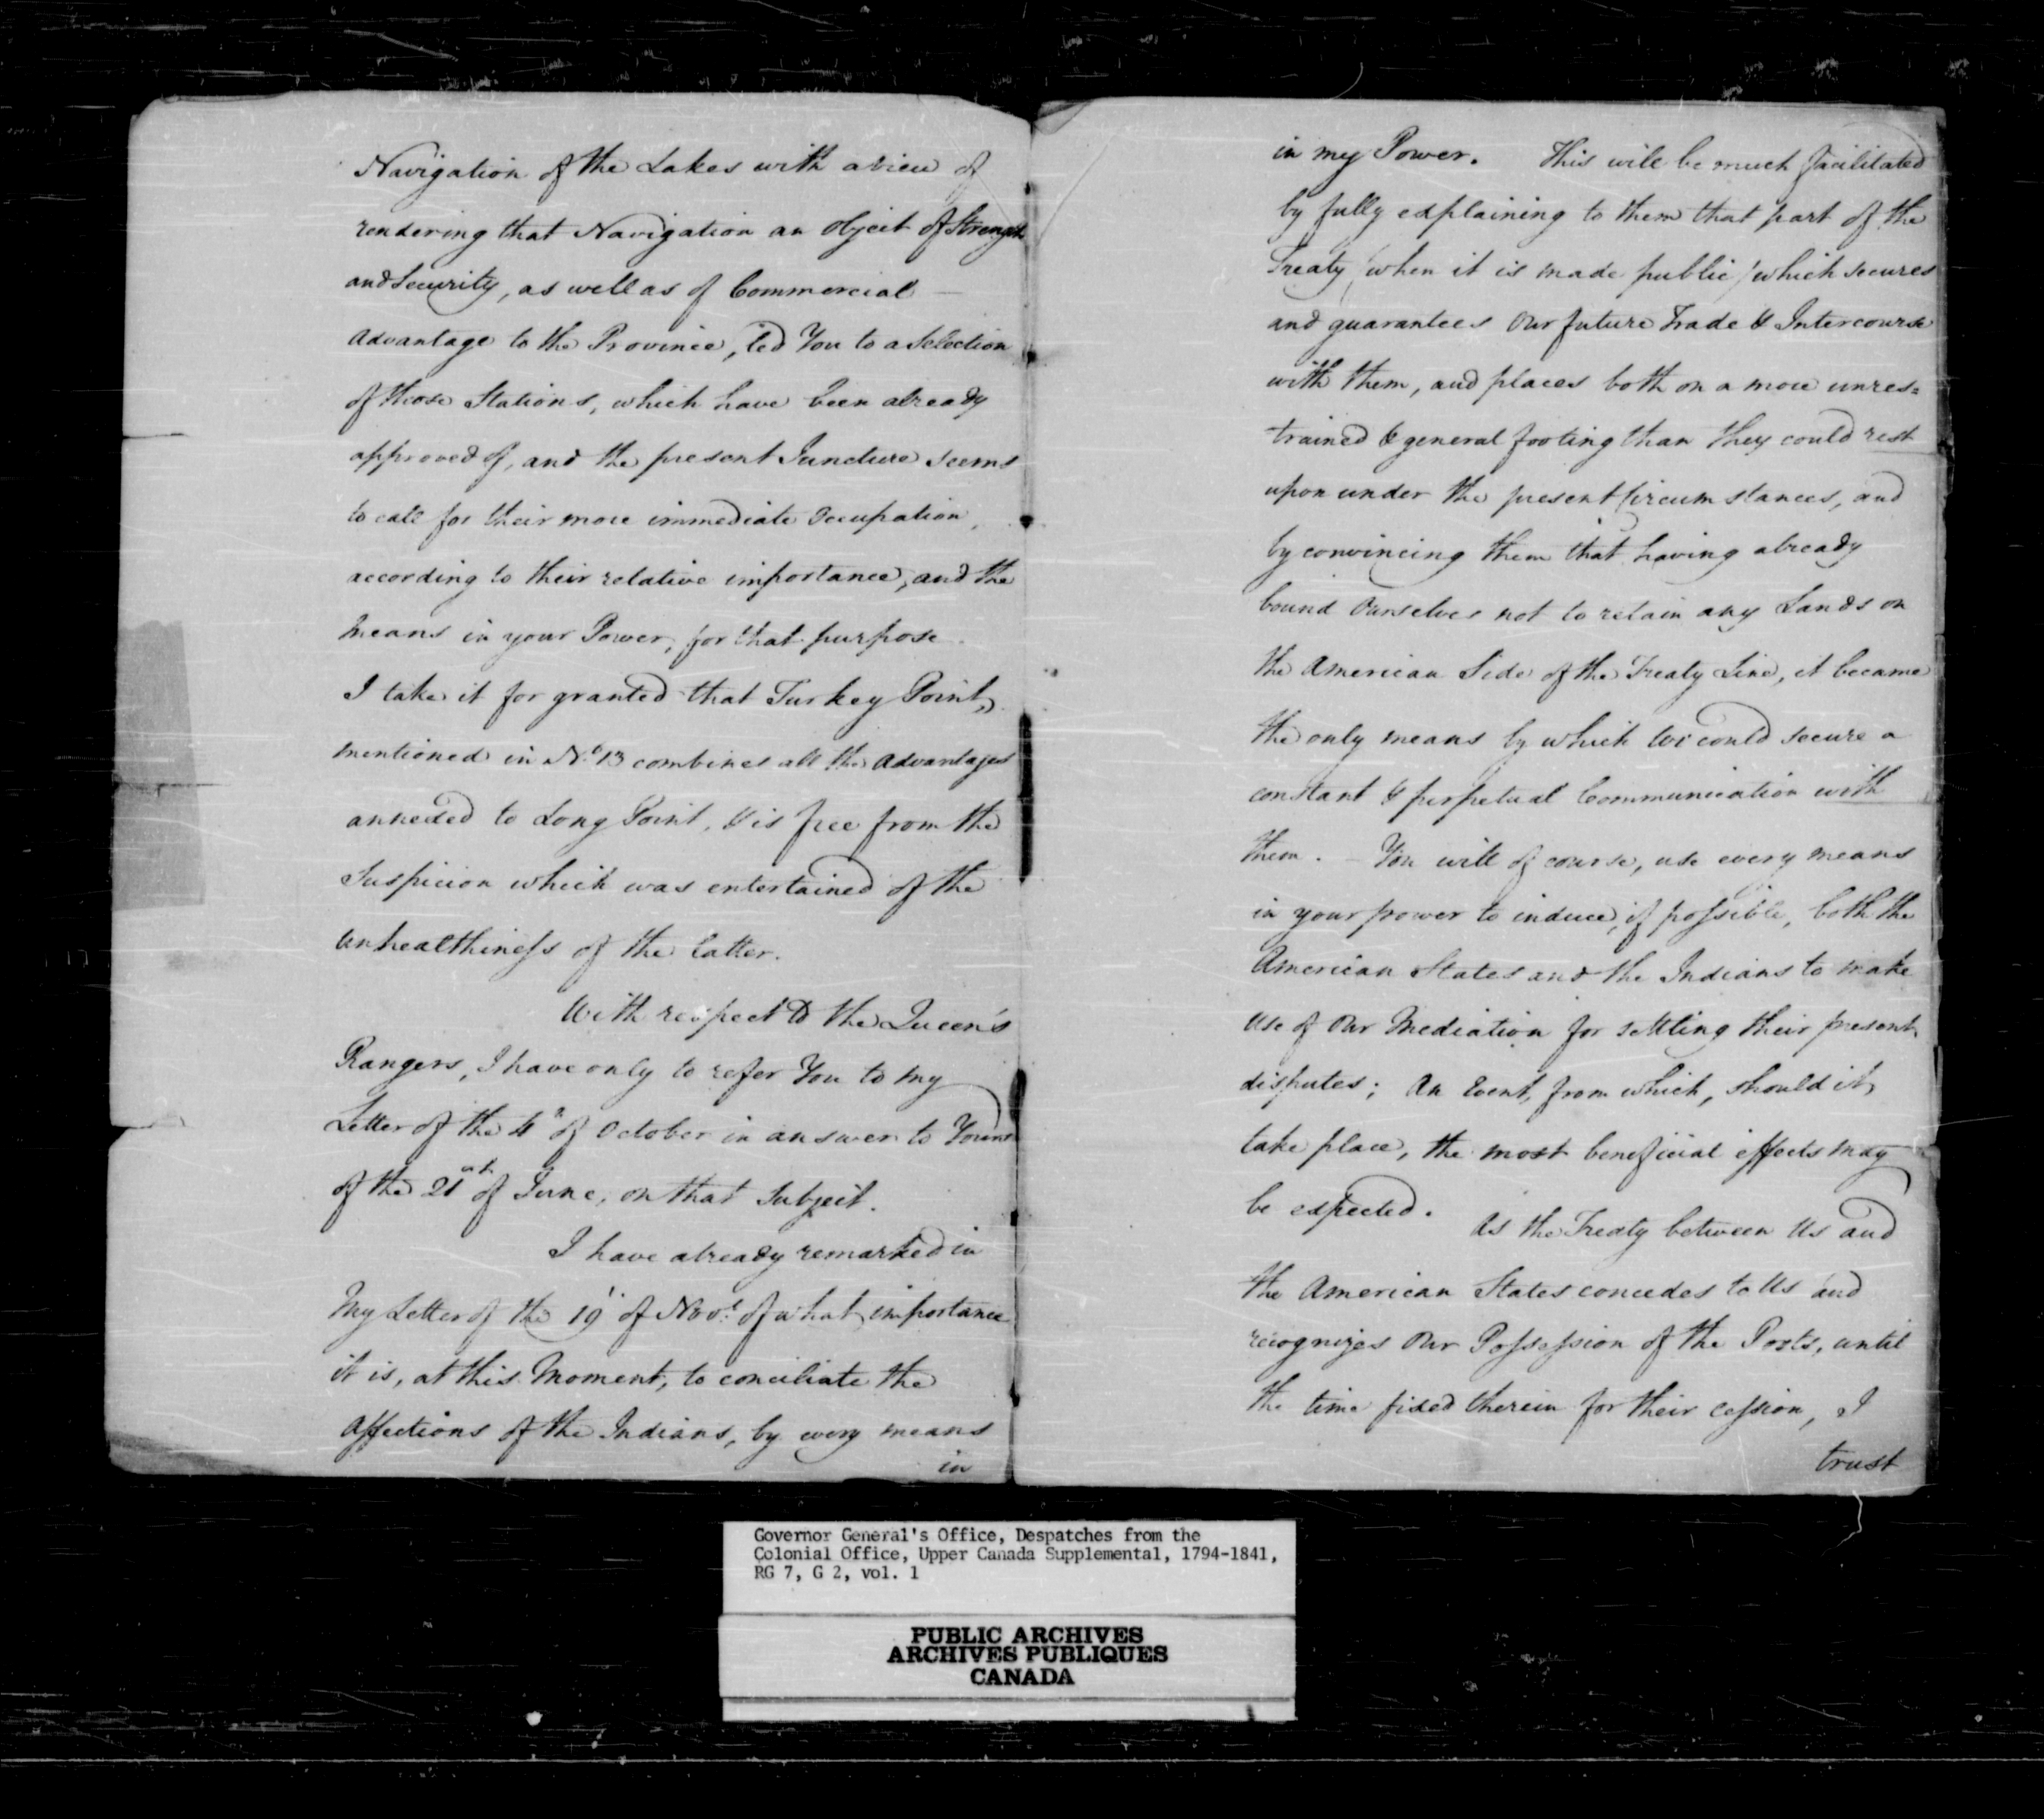 Navigation of the Lakes with a view of
rendering that Navigation an object of Strength
and Security, as well as of Commercial —
advantage to the Province, led You to a Selection
of those Stations, which have been already
approved of, and the present Juncture seems
to call for their more immediate Occupation,
according to their relative importance, and the
Means in your Power, for that purpose.
I take it for granted that Turkey Point,
mentioned in No. 13 combines all the advantages
annexed to Long Point, & is free from the
Suspicion which was entertained of the
unhealthiness of the latter.
With respect to the Queen's
Rangers, I have only to refer You to my
Letter of the 4th of October in answer to Yours
of the 21st of June, on that Subject.
I have already remarked in
My Letter of the 19th of Novr. of what importance
it is, at this Moment, to conciliate the
affections of the Indians, by every means
in
in my Power. This will be much facilitated
by fully explaining to them that part of the
Treaty / when it is made public / which secures
and guarantees Our future Trade & Intercourse
with them, and places both on a more unres=
trained & general footing than they could rest
upon under the present Circumstances, and
by convincing them that having already
bound Ourselves not to retain any Lands on
the American Side of the Treaty Line, it became
the only means by which We could secure a
constant & perpetual Communication with
them. — You will of course, use every means
in your power to induce, if possible, both the
American States and the Indians to make
use of Our Mediation for settling their present
disputes; An Event, from which, should it
take place, the most beneficial effects may
be expected. As the Treaty between Us and
the American States concedes to Us and
recognizes Our Possession of the Posts, until
the time fixed therein for their cession, I
trust
Governor General's Office, Despatches from the
Colonial Office, Upper Canada Supplemental, 1794-1841,
RG 7, G 2, vol. 1
PUBLIC ARCHIVES
ARCHIVES PUBLIQUES
CANADA